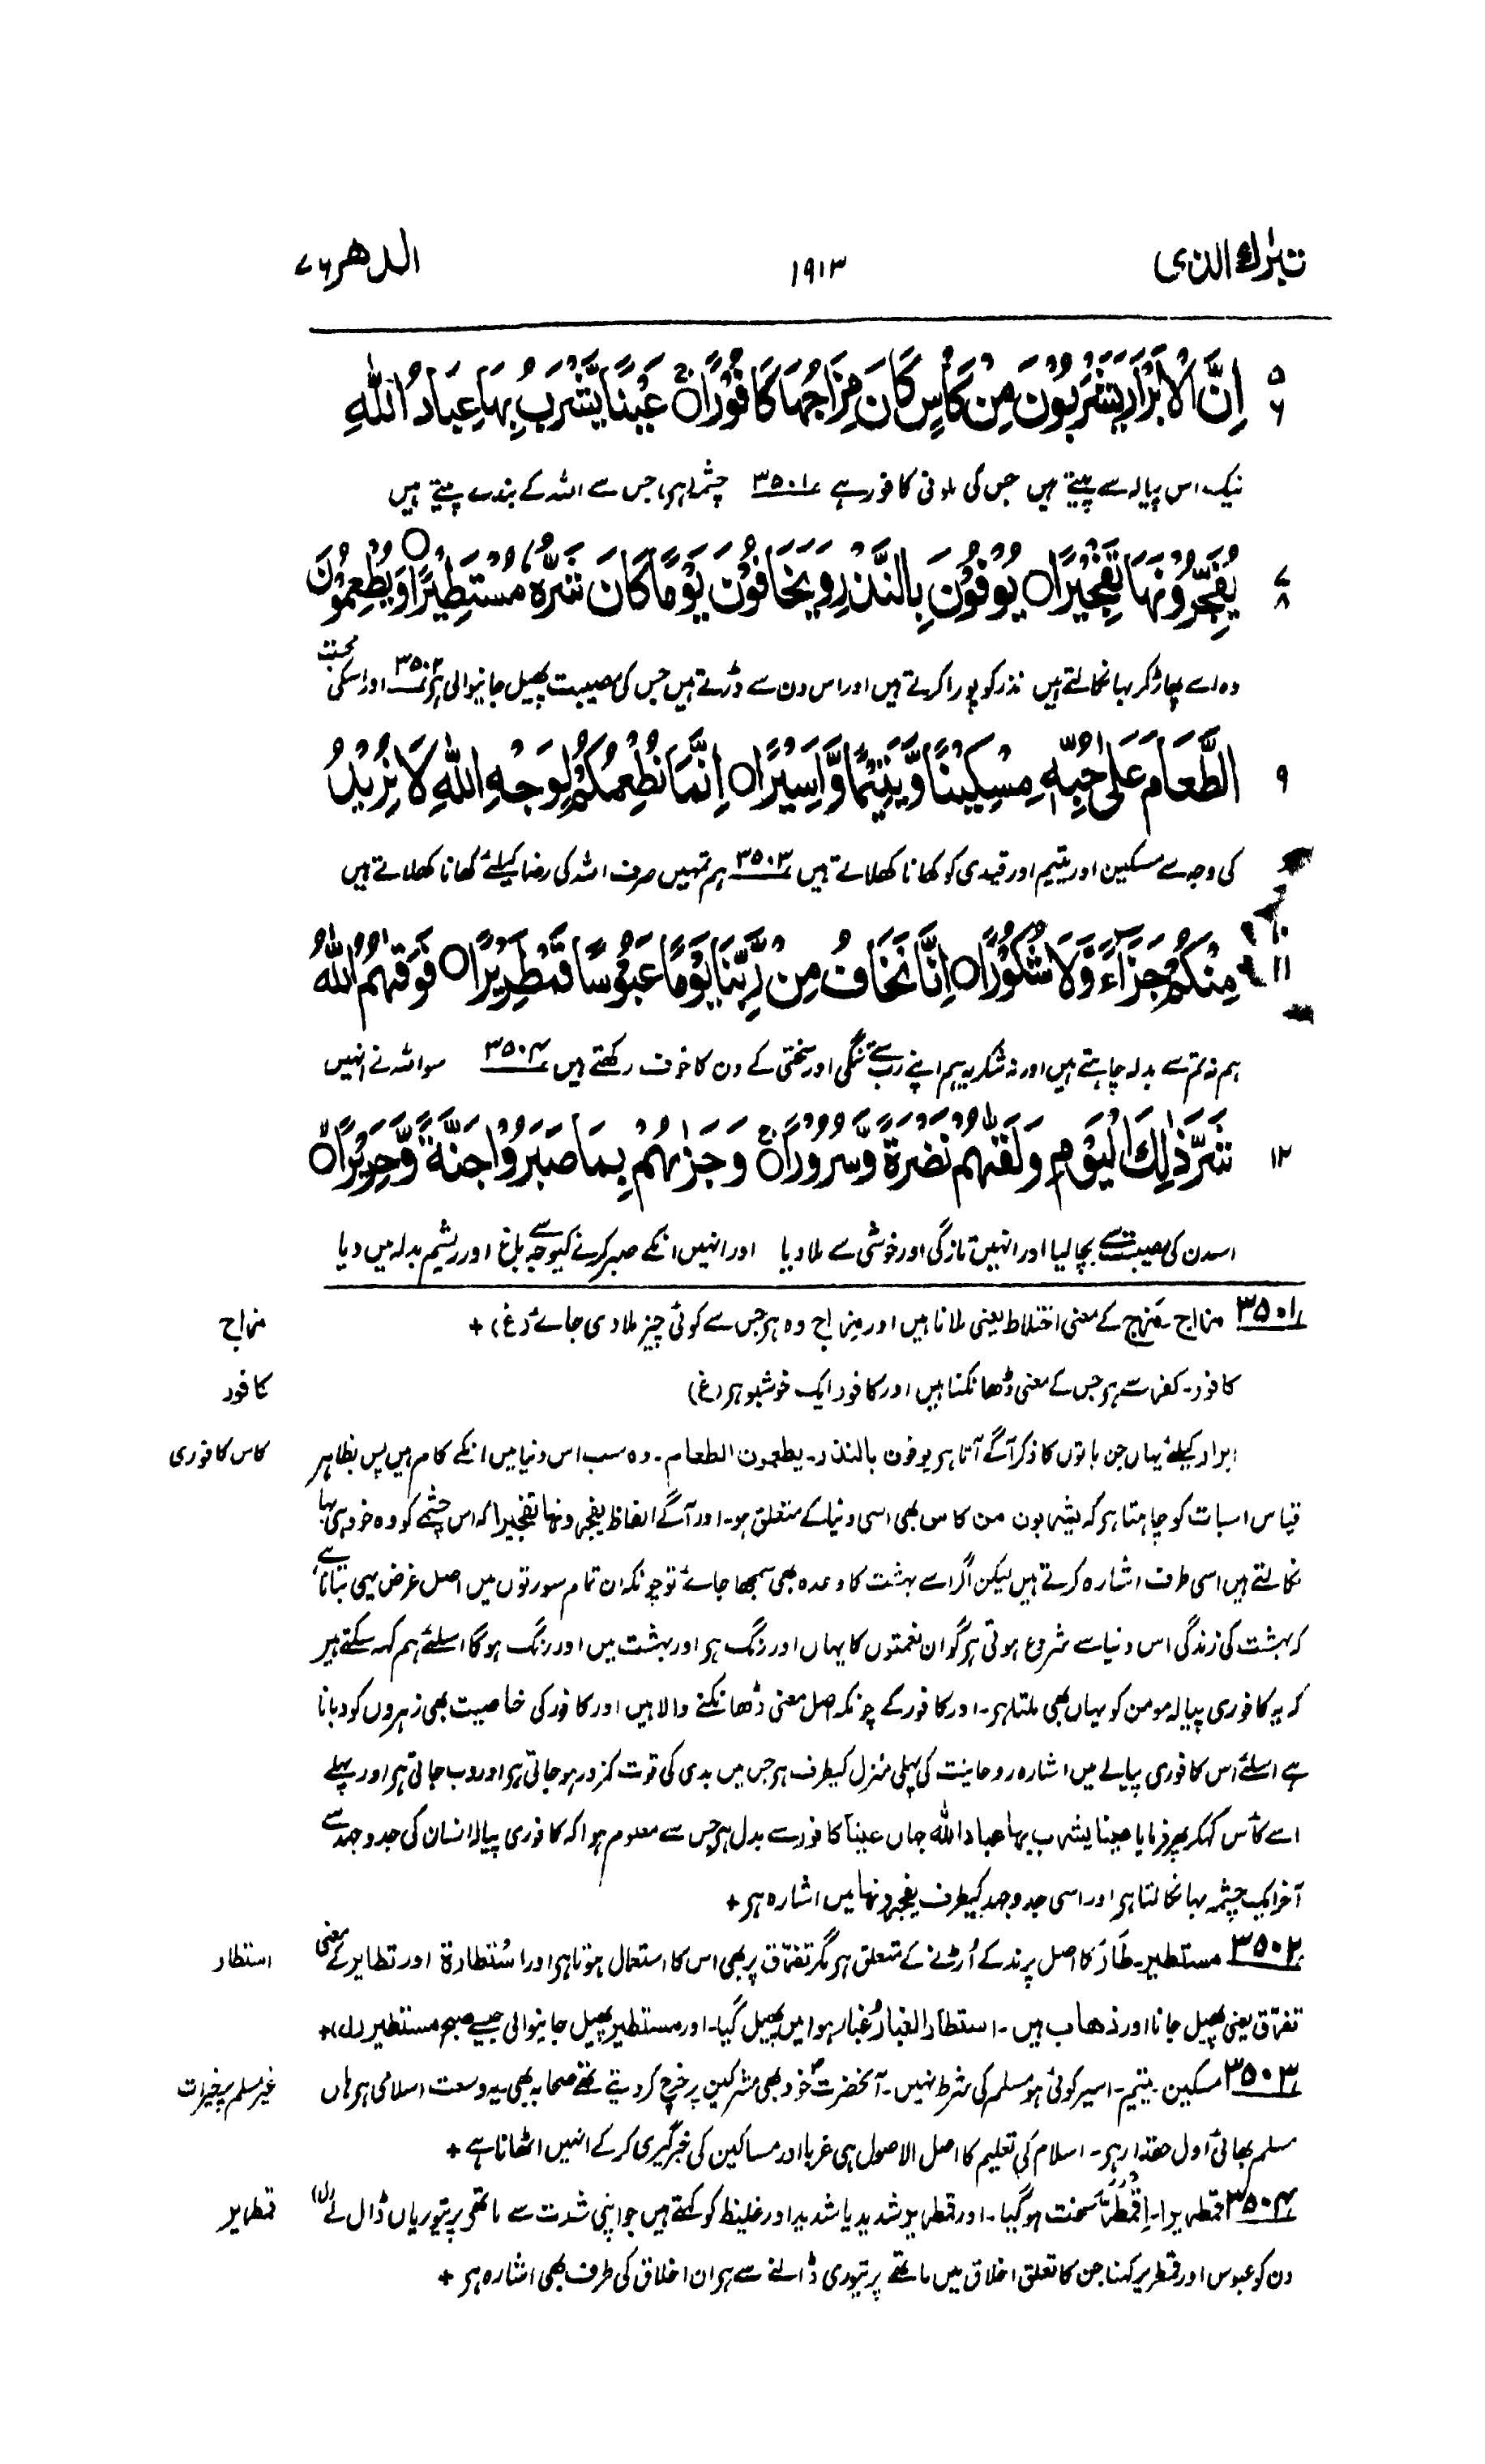 تبٰرك الذی ۱۹۱۳ الدهر ۷۶
۵ ۶ اِنَّ الْاَبْرَارَ یَشْرَبُوْنَ مِنْ كَاْسٍ كَانَ مِزَاجُهَا كَافُوْرًا ۚ عَیْنًا یَّشْرَبُ بِهَا عِبَادُ اللّٰهِ
نیک اس پیالہ سے پیتے ہیں جس کی ملونی کافور ہے ۳۵۰۱ چشمہ (ہی) جس سے اللہ کے بندے پیتے ہیں
۷ ۸ یُفَجِّرُوْنَهَا تَفْجِیْرًا ○ یُوْفُوْنَ بِالنَّذْرِ وَیَخَافُوْنَ یَوْمًا كَانَ شَرُّهٗ مُسْتَطِیْرًا ○ وَیُطْعِمُوْنَ
وہ اسے پھاڑ کر بہا نکالتے ہیں نذر کو پورا کرتے ہیں اور اس دن سے ڈرتے ہیں جس کی مصیبت پھیل جانیوالی ہی ۳۵۰۲ اور اسکی محبت
۹ الطَّعَامَ عَلٰی حُبِّهٖ مِسْكِیْنًا وَّیَتِیْمًا وَّاَسِیْرًا ○ اِنَّمَا نُطْعِمُكُمْ لِوَجْهِ اللّٰهِ لَا نُرِیْدُ
کی وجہ سے مسکین اور یتیم اور قیدی کو کھانا کھلاتے ہیں ۳۵۰۳ ہم تمہیں صرف اللہ کی رضا کیلئے کھانا کھلاتے ہیں
۱۰ ۱۱ مِنْكُمْ جَزَآءً وَّلَا شُكُوْرًا ○ اِنَّا نَخَافُ مِنْ رَّبِّنَا یَوْمًا عَبُوْسًا قَمْطَرِیْرًا ○ فَوَقٰىهُمُ اللّٰهُ
ہم نہ تم سے بدلہ چاہتے ہیں اور نہ شکریہ ہم اپنے رب سے تنگی اور سختی کے دن کا خوف رکھتے ہیں ۳۵۰۴ سو اللہ نے انہیں
۱۲ شَرَّ ذٰلِكَ الْیَوْمِ وَلَقّٰىهُمْ نَضْرَةً وَّسُرُوْرًا ۚ وَجَزٰىهُمْ بِمَا صَبَرُوْا جَنَّةً وَّحَرِیْرًا ○
اسدن کی مصیبت سے بچا لیا اور انہیں تازگی اور خوشی سے ملا دیا اور انہیں انکے صبر کرنے کیوجہ سے باغ اور ریشم بدلہ میں دیا
۳۵۰۱ مزاج۔ مَزَج کے معنی اختلاط یعنی ملانا ہیں اور مِزاج وہ ہی جس سے کوئی چیز ملادی جائے (غ)+ مزاج
کافور۔ کفر سے ہی جس کے معنی ڈھانکنا ہیں اور کافور ایک خوشبو ہی (غ) کافور
ابرار کیلئے یہاں جن باتوں کا ذکر آگے آتا ہی یوفون بالنذر۔ یطعمون الطعام۔ وہ سب اس دنیا میں انکے کام ہیں پس بظاہر کاس کافوری
قیاس اسبات کو چاہتا ہی کہ یشربون من کاس بھی اسی دنیا کے متعلق ہو۔ اور آگے الفاظ یفجرونها تفجیرا کہ اس چشمے کو وہ خود ہی بہا
نکالتے ہیں اسی طرف اشارہ کرتے ہیں لیکن اگر اسے بہشت کا وعدہ بھی سمجھا جائے تو چونکہ ان تمام سورتوں میں اصل غرض یہی بتانا ہے
کہ بہشت کی زندگی اس دنیا سے شروع ہوتی ہی گو ان نعمتوں کا یہاں اور رنگ ہی اور بہشت میں اور رنگ ہوگا اسلئے ہم کہہ سکتے ہیں
کہ یہ کافوری پیالہ مومن کو یہاں بھی ملتا ہی۔ اور کافور کے چونکہ اصل معنی ڈھانکنے والا ہیں اور کافور کی خاصیت بھی زہروں کو دبانا
ہے اسلئے اس کافوری پیالے میں اشارہ روحانیت کی پہلی منزل کیطرف ہی جس میں بدی کی قوت کمزور ہو جاتی ہی اور دب جاتی ہی اور پہلے
اسے کأس کہکر پھر فرمایا عینا یشرب بها عباد الله جہاں عیناً کافور سے بدل ہی جس سے معلوم ہوا کہ کافوری پیالہ انسان کی جدوجہد سے
آخر ایک چشمہ بہا نکالتا ہی اور اسی جدوجہد کیطرف یفجرونها میں اشارہ ہی+
۳۵۰۲ مستطیر۔ طَارَ کا اصل پرند کے اُڑنے کے متعلق ہی مگر تفرّق پر بھی اس کا استعمال ہوتا ہی اور اِسْتِطارة اور تطایر کے معنی استطار
تفرّق یعنی پھیل جانا اور ذهاب ہیں۔ استطار الغبارُ غبار ہوا میں پھیل گیا۔ اور مستطیر پھیل جانیوالی جیسے صبح مستطیر (ل)+
۳۵۰۳ مسکین۔ یتیم۔ اسیر کوئی ہو مسلم کی شرط نہیں۔ آنحضرت ؐ خود بھی مشرکین پر خرچ کر دیتے تھے صحابہ بھی یہ وسعت اسلامی ہی ہاں غیر مسلم پر خیرات
مسلم بھائی اول حقدار ہی۔ اسلام کی تعلیم کا اصل الاصول ہی غربا اور مساکین کی خبرگیری کرکے انہیں اٹھانا ہے+
۳۵۰۴ قمطریرا۔ اِقْمَطَرَّ سخت ہوگیا۔ اور قمطریر شدید یا شدید اور غلیظ کو کہتے ہیں جو اپنی شدت سے ماتھے پر تیوریاں ڈال لے (ل) قمطریر
دن کو عبوس اور قمطریر کہنا جن کا تعلق اخلاق میں ماتھے پر تیوری ڈالنے سے ہی ان اخلاق کی طرف بھی اشارہ ہی+